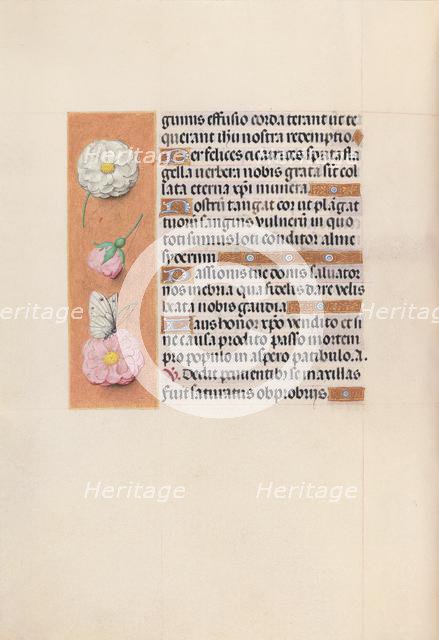 guinis effusio corda terant ut te
querant ihu nostra redemptio.
Per felices cicatrices sputa fla
gella verbera nobis grata sit col
lata eterna xpi munera
Nostrū tangat cor ut plagat
tuorū sanguis vulnerū in quo
toti simus loti conditor alme
syderum
Passionis tue donis salvator
nos inebria qua fidelis dare velis
beata nobis gaudia
Laus honor xpo vendito et si
ne causa prodito passo mortem
pro populo in aspero patibulo. A.
V. Dedit percutienti se maxillas
Fuit saturatus obprobriis
Heritage
Heritage
Heritage
Heritage